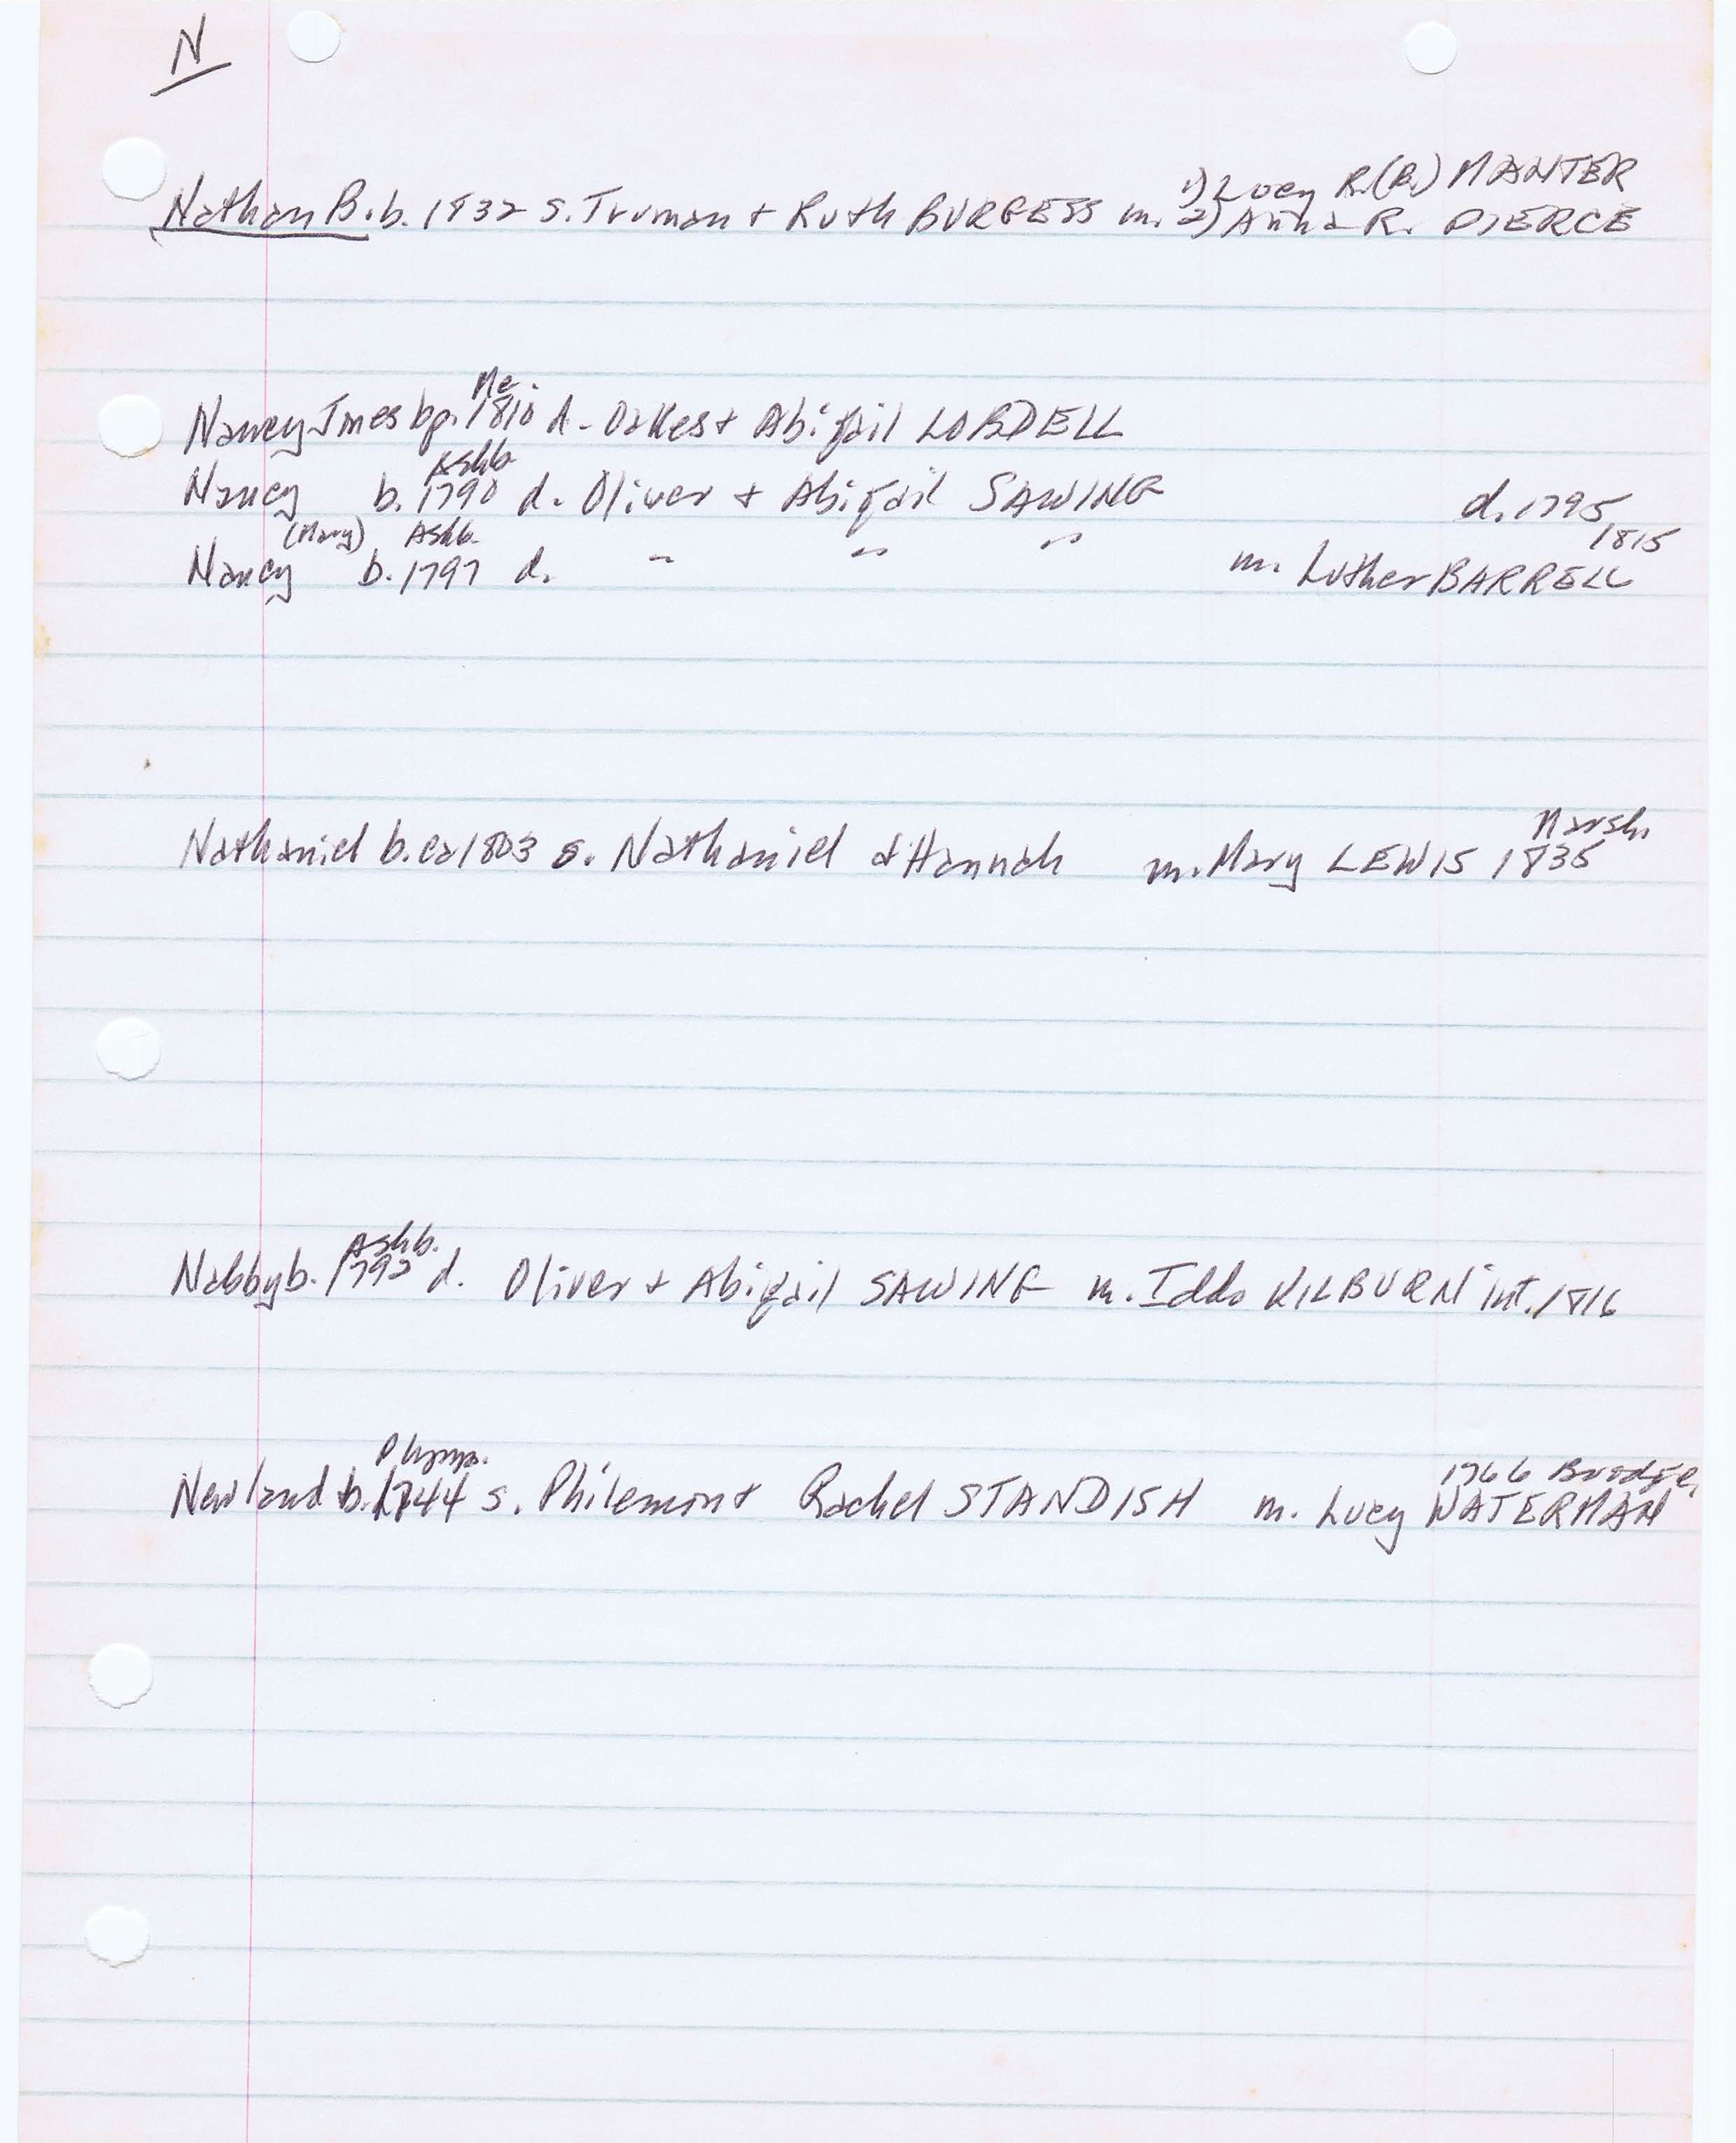 N
1) Lucy R. (B.) MANTER
Nathan B. b. 1832 s. Truman + Ruth BURGESS m. 2) Anna R. PIERCE
Me.
Nancy Jmes bp. 1810 d. Oakes + Abigail LOBDELL
Ashb.
Nancy b. 1790 d. Oliver + Abigail SAWING d. 1795
(Mary) Ashb. 1815
Nancy b. 1797 d. " " " m. Luther BARRELL
Marsh.
Nathaniel b. ca 1803 s. Nathaniel + Hannah m. Mary LEWIS 1835
Ashb.
Nabby b. 1792 d. Oliver + Abigail SAWING m. Iddo KILBURN int. 1816
Plymp. 1766 Bridge,
Newland b. 1744 s. Philemon + Rachel STANDISH m. Lucy WATERMAN